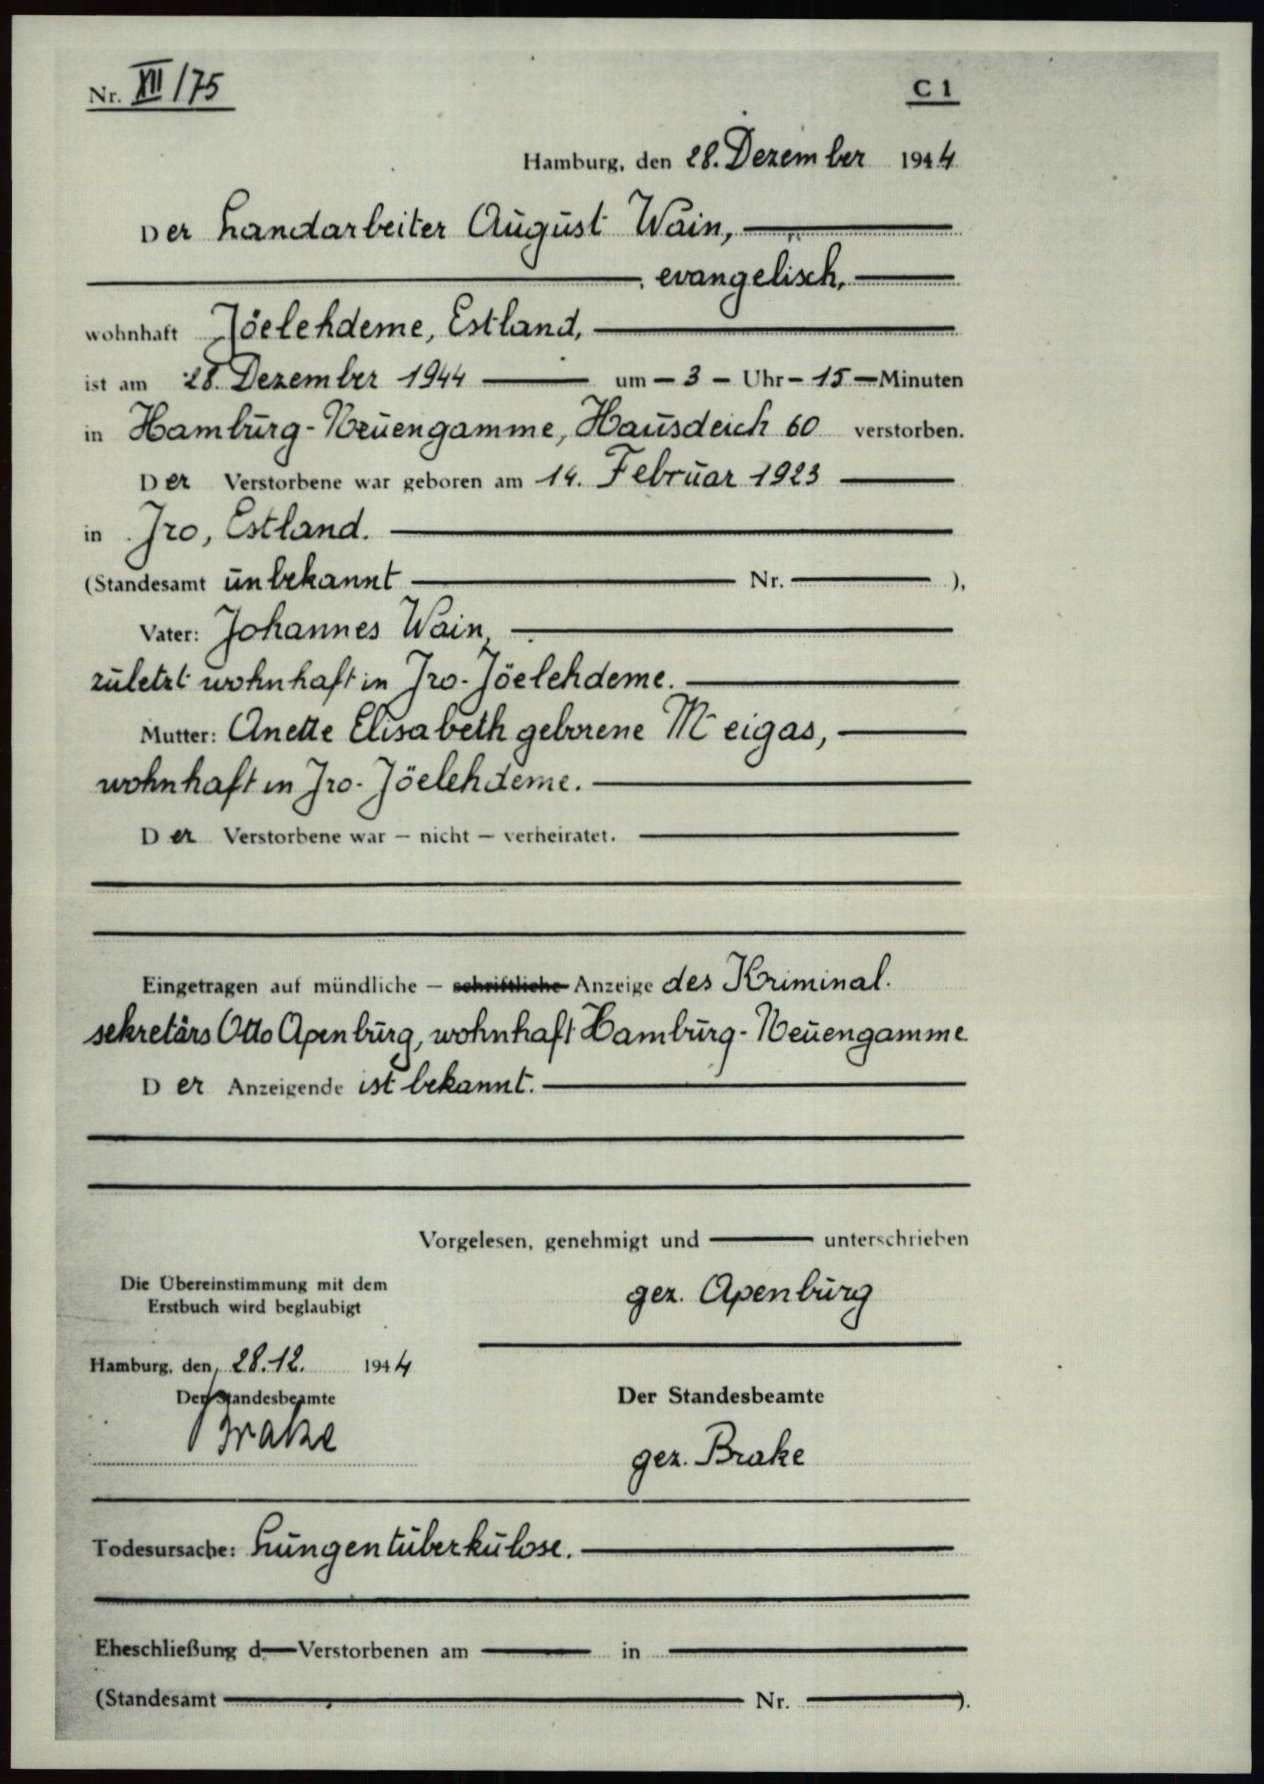 Nr. XII/75
C 1
Hamburg, den 28. Dezember 1944
Der Landarbeiter August Wain,
evangelisch,
wohnhaft Jöelehdeme, Estland,
ist am 28. Dezember 1944 um - 3 - Uhr - 15 - Minuten
in Hamburg-Neuengamme, Hausdeich 60 verstorben.
Der Verstorbene war geboren am 14. Februar 1923
in Jro, Estland.
(Standesamt unbekannt Nr. ),
Vater: Johannes Wain,
zuletzt wohnhaft in Jro-Jöelehdeme.
Mutter: Anette Elisabeth geborene Meigas,
wohnhaft in Jro-Jöelehdeme.
Der Verstorbene war — nicht — verheiratet.
Eingetragen auf mündliche — schriftliche Anzeige des Kriminal-
sekretärs Otto Apenburg, wohnhaft Hamburg-Neuengamme
Der Anzeigende ist bekannt.
Vorgelesen, genehmigt und unterschrieben
gez. Apenburg
Die Übereinstimmung mit dem
Erstbuch wird beglaubigt
Hamburg, den 28.12. 1944
Der Standesbeamte
Brake
Der Standesbeamte
gez. Brake
Todesursache: Lungentuberkulose.
Eheschließung d Verstorbenen am in
(Standesamt Nr. ).